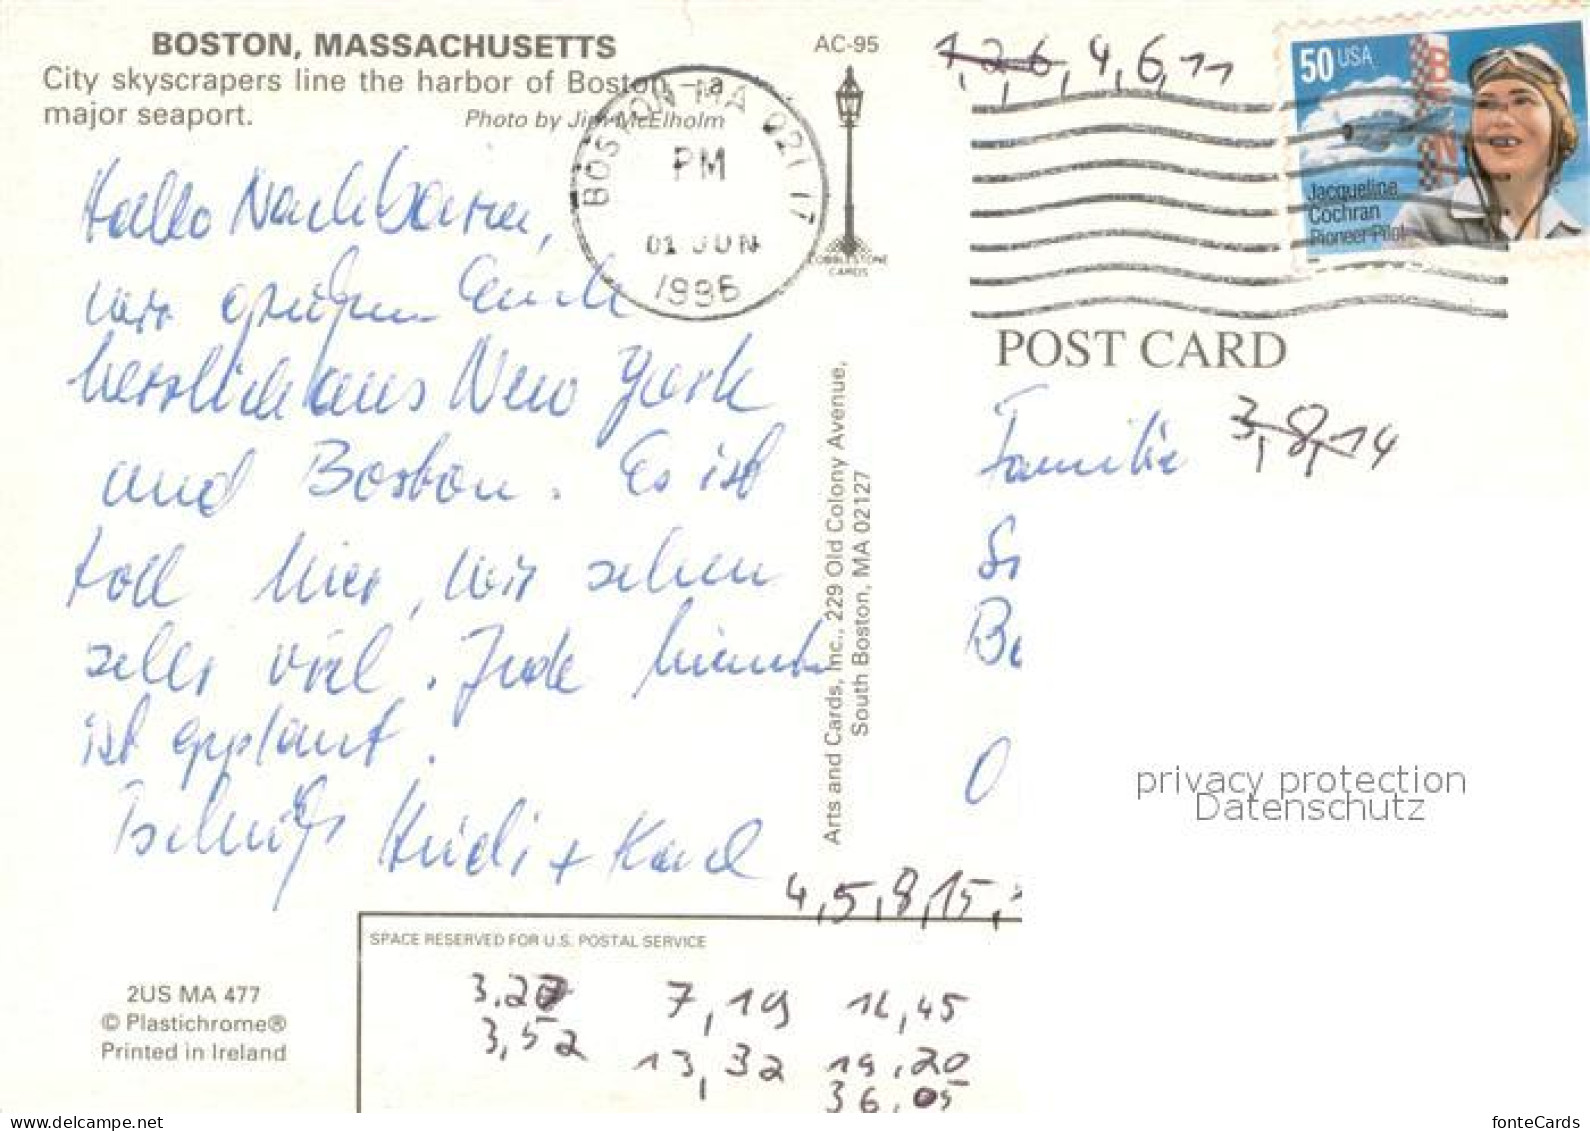 BOSTON, MASSACHUSETTS
City skyscrapers line the harbor of Boston — a
major seaport.
Photo by Jim McElholm
AC-95
1,2,6, 4,6,11
50 USA
Jacqueline
Cochran
Pioneer Pilot
BOSTON MA 021 17
PM
01 JUN
1996
COBBLESTONE
CARDS
POST CARD
Hallo Nachbarn,
wir grüßen Euch
herzlich aus New York
und Boston. Es ist
toll hier, wir sehen
sehr viel. Jede Minute
ist geplant.
Tschüß Heidi + Karl
Arts and Cards, Inc., 229 Old Colony Avenue,
South Boston, MA 02127
Familie 3,8,14
Be
O
privacy protection
Datenschutz
4,5,8,15,
SPACE RESERVED FOR U.S. POSTAL SERVICE
3,52
7,19 16,45
13,32 19,20
36,05
2US MA 477
© Plastichrome®
Printed in Ireland
www.delcampe.net
fonteCards